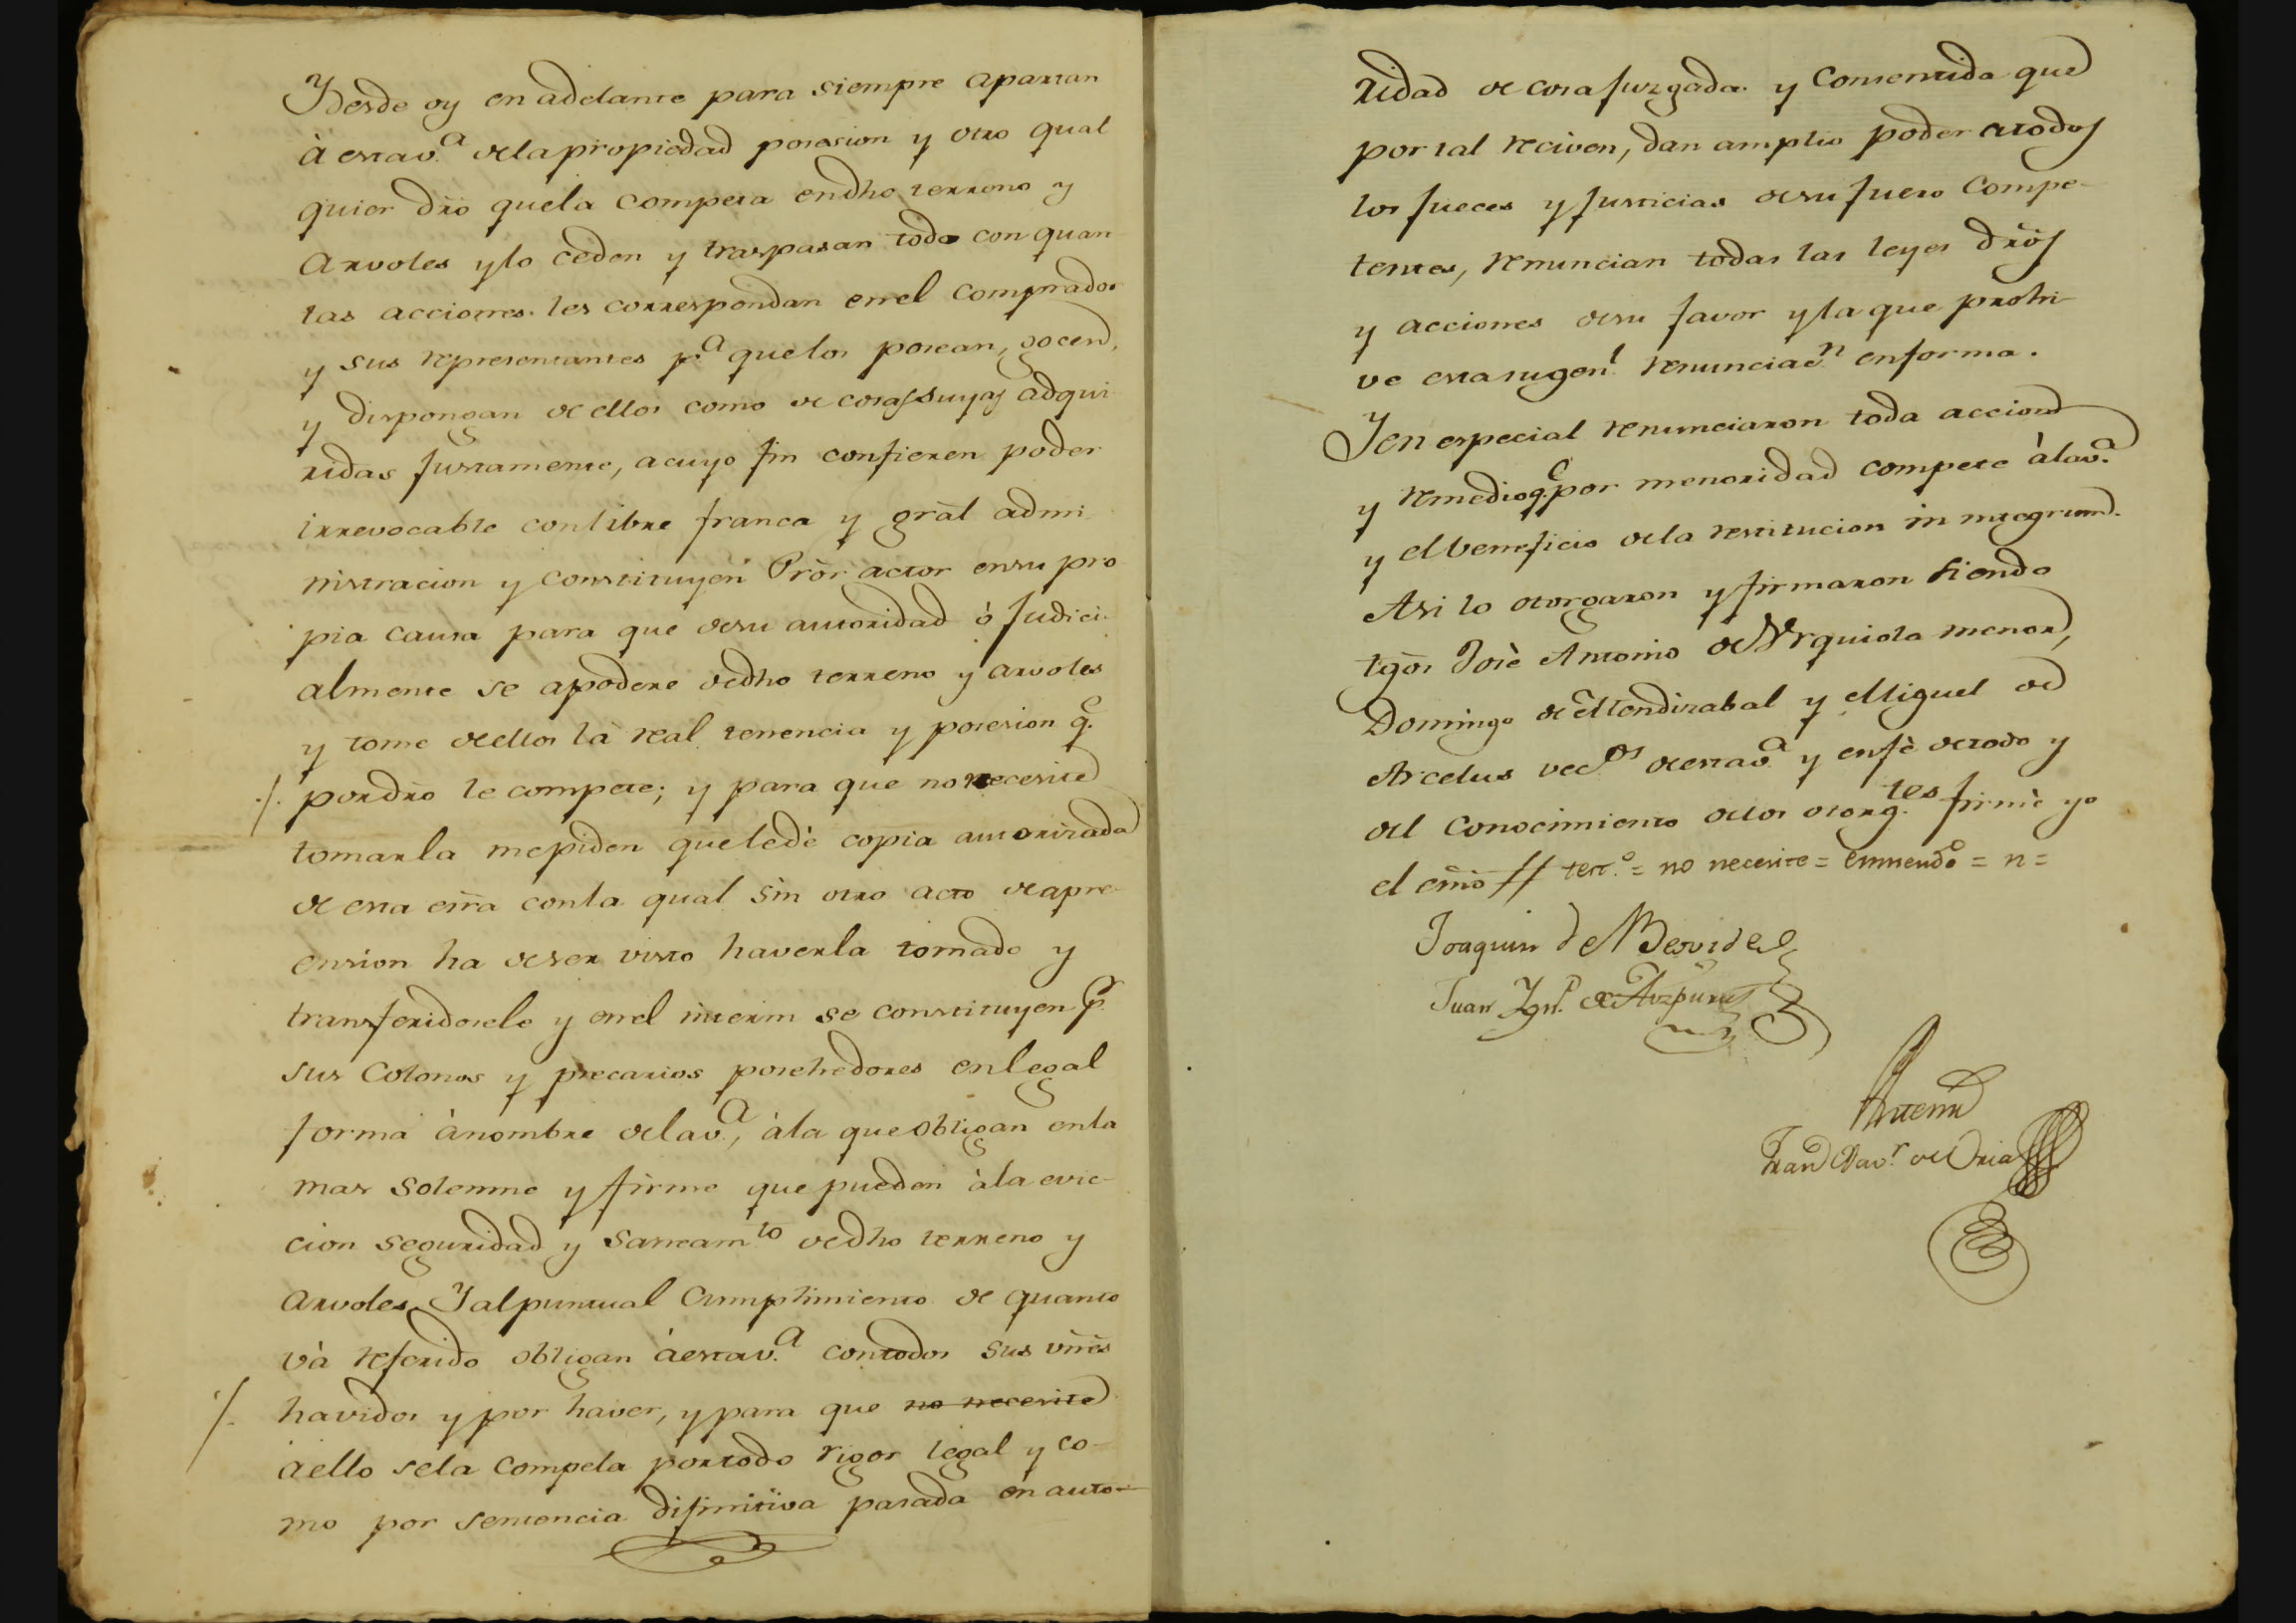 Y desde oy en adelante para siempre apartan
à esta v.ª de la propiedad posesion y otro qual
quier dr̃o que la competa en dho terreno y
Arvoles y lo ceden y traspasan todo con quan
tas acciones les correspondan en el comprador
y sus representantes p.ª que los posean, gocen,
y dispongan de ellos como de cosas suyas adqui
ridas justamente, a cuyo fin confieren poder
irrevocable con libre franca y gral admi
nistracion y constituyen Pror actor en su pro
pia causa para que de su autoridad ò Judici
almente se apodere de dho terreno y arvoles
y tome de ellos la real tenencia y posesion q.e
./. por dr̃o le compete; y para que no necesite
tomarla me piden que le dè copia autorizada
de esta esc̃ra con la qual sin otro acto de apre-
ension ha de ser visto haverla tomado y
transferidosele y en el interin se constituyen p.r
sus Colonos y precarios posehedores en legal
forma à nombre de la v.ª, à la que obligan en la
mas solemne y firme que pueden à la evic-
cion seguridad y saneam.to de dho terreno y
arvoles. Y al puntual cumplimiento de quanto
và referido obligan à esta v.ª con todos sus vñes
./. havidos y por haver, y para que no necesite
à ello se la compela por todo rigor legal y co-
mo por sentencia difinitiva pasada en auto-
ridad de cosa juzgada y consentida que
por tal reciven, dan amplio poder a todos
los Jueces y Justicias de su fuero Compe-
tentes, renuncian todas las leyes dr̃os
y acciones de su favor y la que prohi-
ve esta su gen.l renunciac.n en forma.
Y en especial renunciaron toda accion
y remedio q.e por menoridad compete à la v.ª
y el beneficio de la restitucion in integrum.
Asi lo otorgaron y firmaron siendo
tgõs Josè Antonio de Urquiola menor,
Domingo de Mendizabal y Miguel de
Arcelus vec.os de esta v.ª y en fè de todo y
del conocimiento de los otorg.tes firmè yo
el esñõ // test.o = no necesite = enmend.o = n =
Joaquin de
Juan Ygn.o de Aizpuru
Ante mi
Fran.co Xav.r de Oria